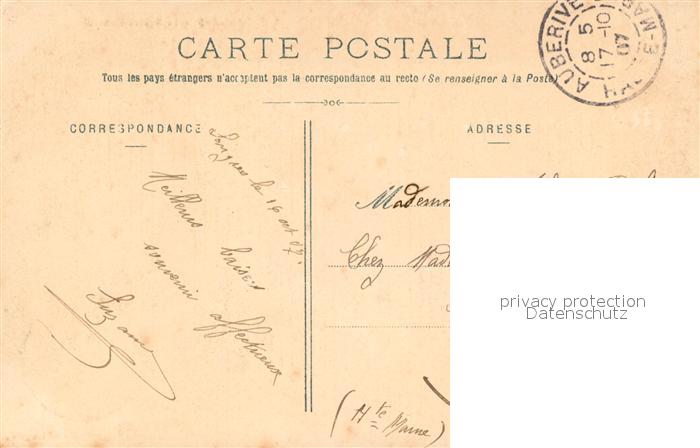 CARTE POSTALE
Tous les pays étrangers n'acceptent pas la correspondance au recto (Se renseigner à la Poste)
CORRESPONDANCE
Langres le 16 oct 07.
Meilleurs baisers
souvenir affectueux
Suzanne
ADRESSE
Chez
(Hte Marne)
AUBERIVE
8 5
17-10
07
privacy protection
Datenschutz